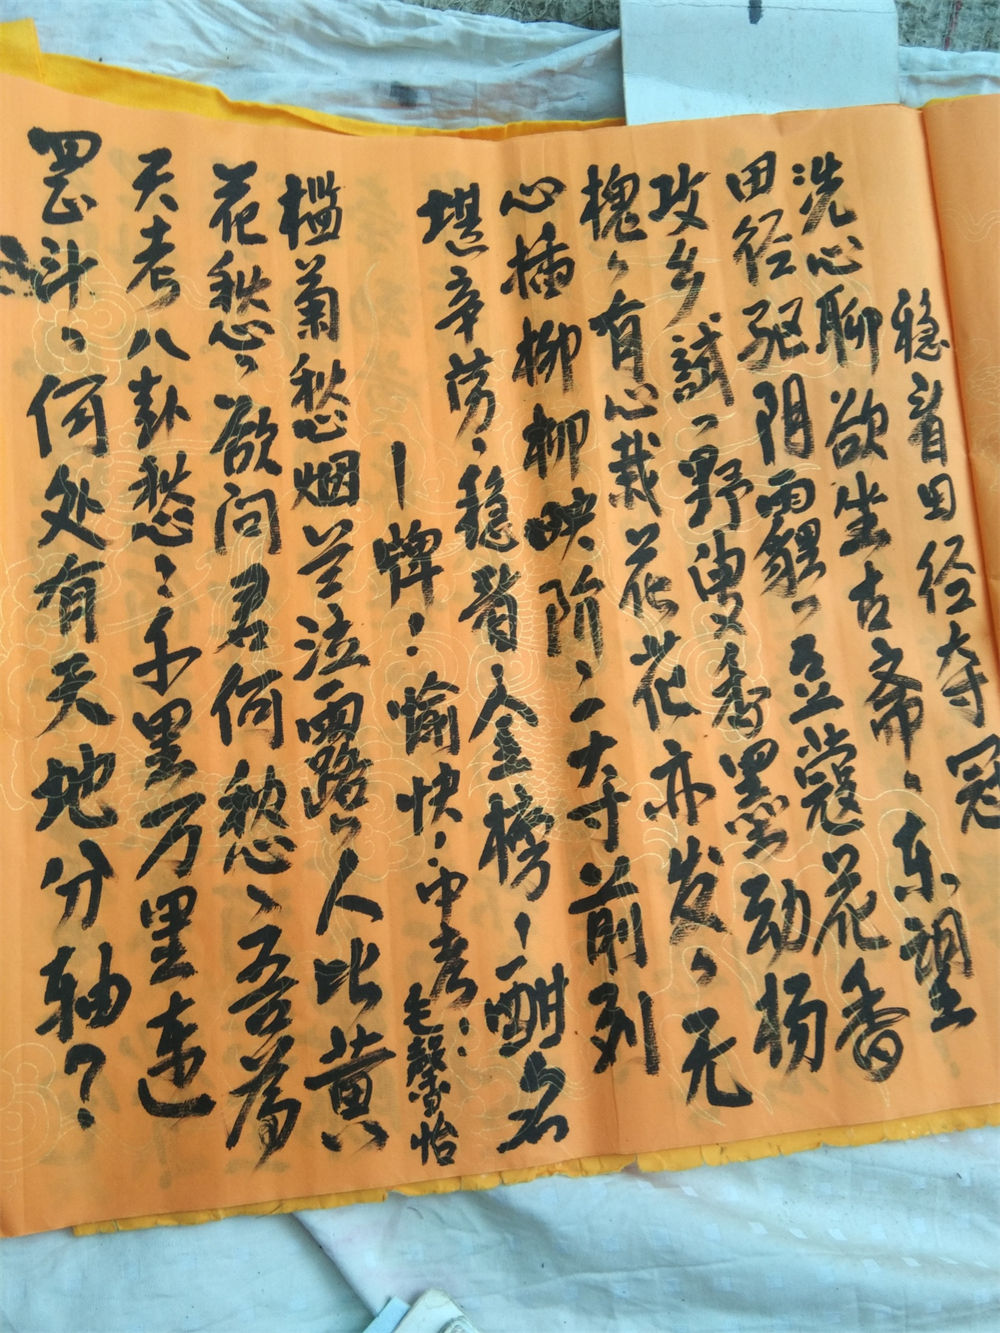 稳首田径夺冠
洗心聊欲坐古斋、东望
田径驱阴霾、豆蔻花香
攻乡试、野 香墨动杨
槐、有心栽花花亦发、无
心插柳柳映阶、二夺前列
堪辛劳、稳首金榜！酬名
一牌！愉快！中考：毛馨怡
槛菊愁烟兰泣露、人比黄
花愁、欲问君何愁、吾为
天考八卦愁、千里万里连
罡斗、何处有天地分轴？